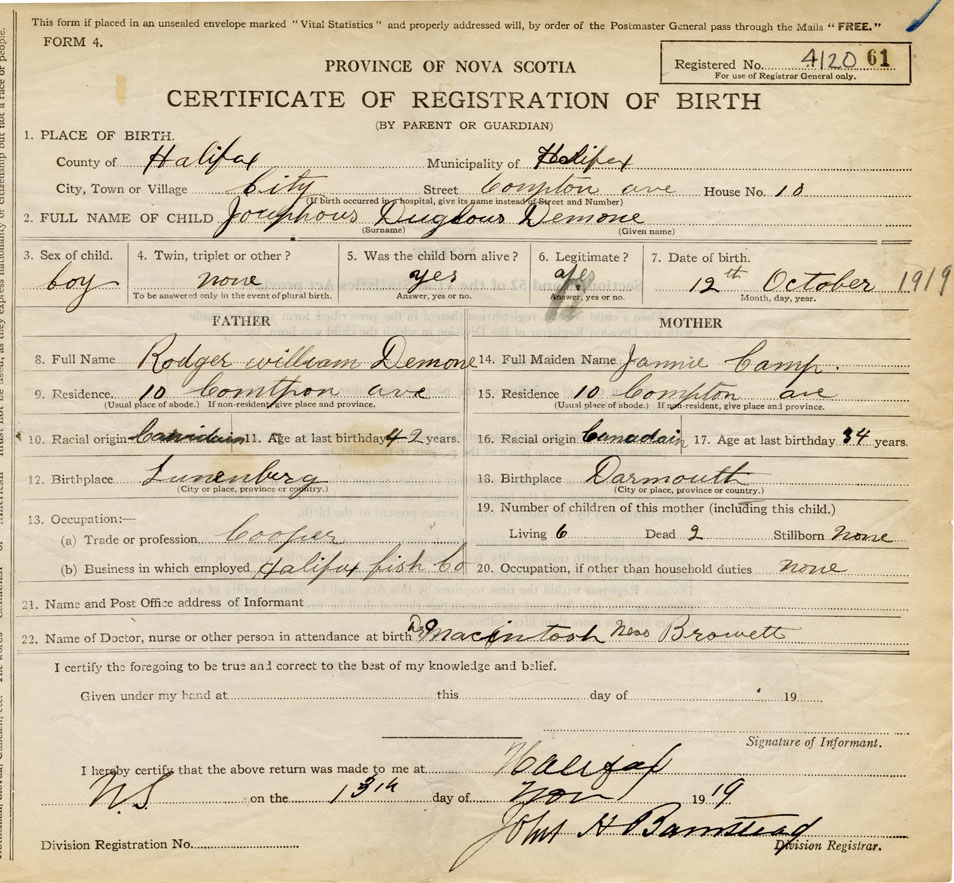 This form if placed in an unsealed envelope marked "Vital Statistics" and properly addressed will, by order of the Postmaster General pass through the Mails "FREE."
FORM 4.
Registered No. 4120 61
For use of Registrar General only.
PROVINCE OF NOVA SCOTIA
CERTIFICATE OF REGISTRATION OF BIRTH
(BY PARENT OR GUARDIAN)
1. PLACE OF BIRTH.
County of Halifax Municipality of Halifax
City, Town or Village City Street Compton ave House No. 10
(If birth occurred in a hospital, give its name instead of Street and Number)
2. FULL NAME OF CHILD Josephous Duglous Demone
(Surname) (Given name)
3. Sex of child. 4. Twin, triplet or other? 5. Was the child born alive? 6. Legitimate? 7. Date of birth.
boy none yes yes 12th October 1919
To be answered only in the event of plural birth. Answer, yes or no. Answer, yes or no. Month, day, year.
FATHER MOTHER
8. Full Name Rodger william Demone 14. Full Maiden Name Jannie Camp.
9. Residence 10 Comthon ave 15. Residence 10 Compton ave
(Usual place of abode.) If non-resident, give place and province. (Usual place of abode.) If non-resident, give place and province.
10. Racial origin Canidain 11. Age at last birthday 42 years. 16. Racial origin Canadain 17. Age at last birthday 34 years.
12. Birthplace Lunenberg 18. Birthplace Darmouth
(City or place, province or country.) (City or place, province or country.)
19. Number of children of this mother (including this child.)
13. Occupation:—
(a) Trade or profession Cooper Living 6 Dead 2 Stillborn none
(b) Business in which employed Halifax fish Co 20. Occupation, if other than household duties none
21. Name and Post Office address of Informant
22. Name of Doctor, nurse or other person in attendance at birth Dr Macintosh Browett
I certify the foregoing to be true and correct to the best of my knowledge and belief.
Given under my hand at this day of 19
Signature of Informant.
I hereby certify that the above return was made to me at Halifax
N.S on the 13th day of Nov 1919
John H Barnstead
Division Registration No. Division Registrar.